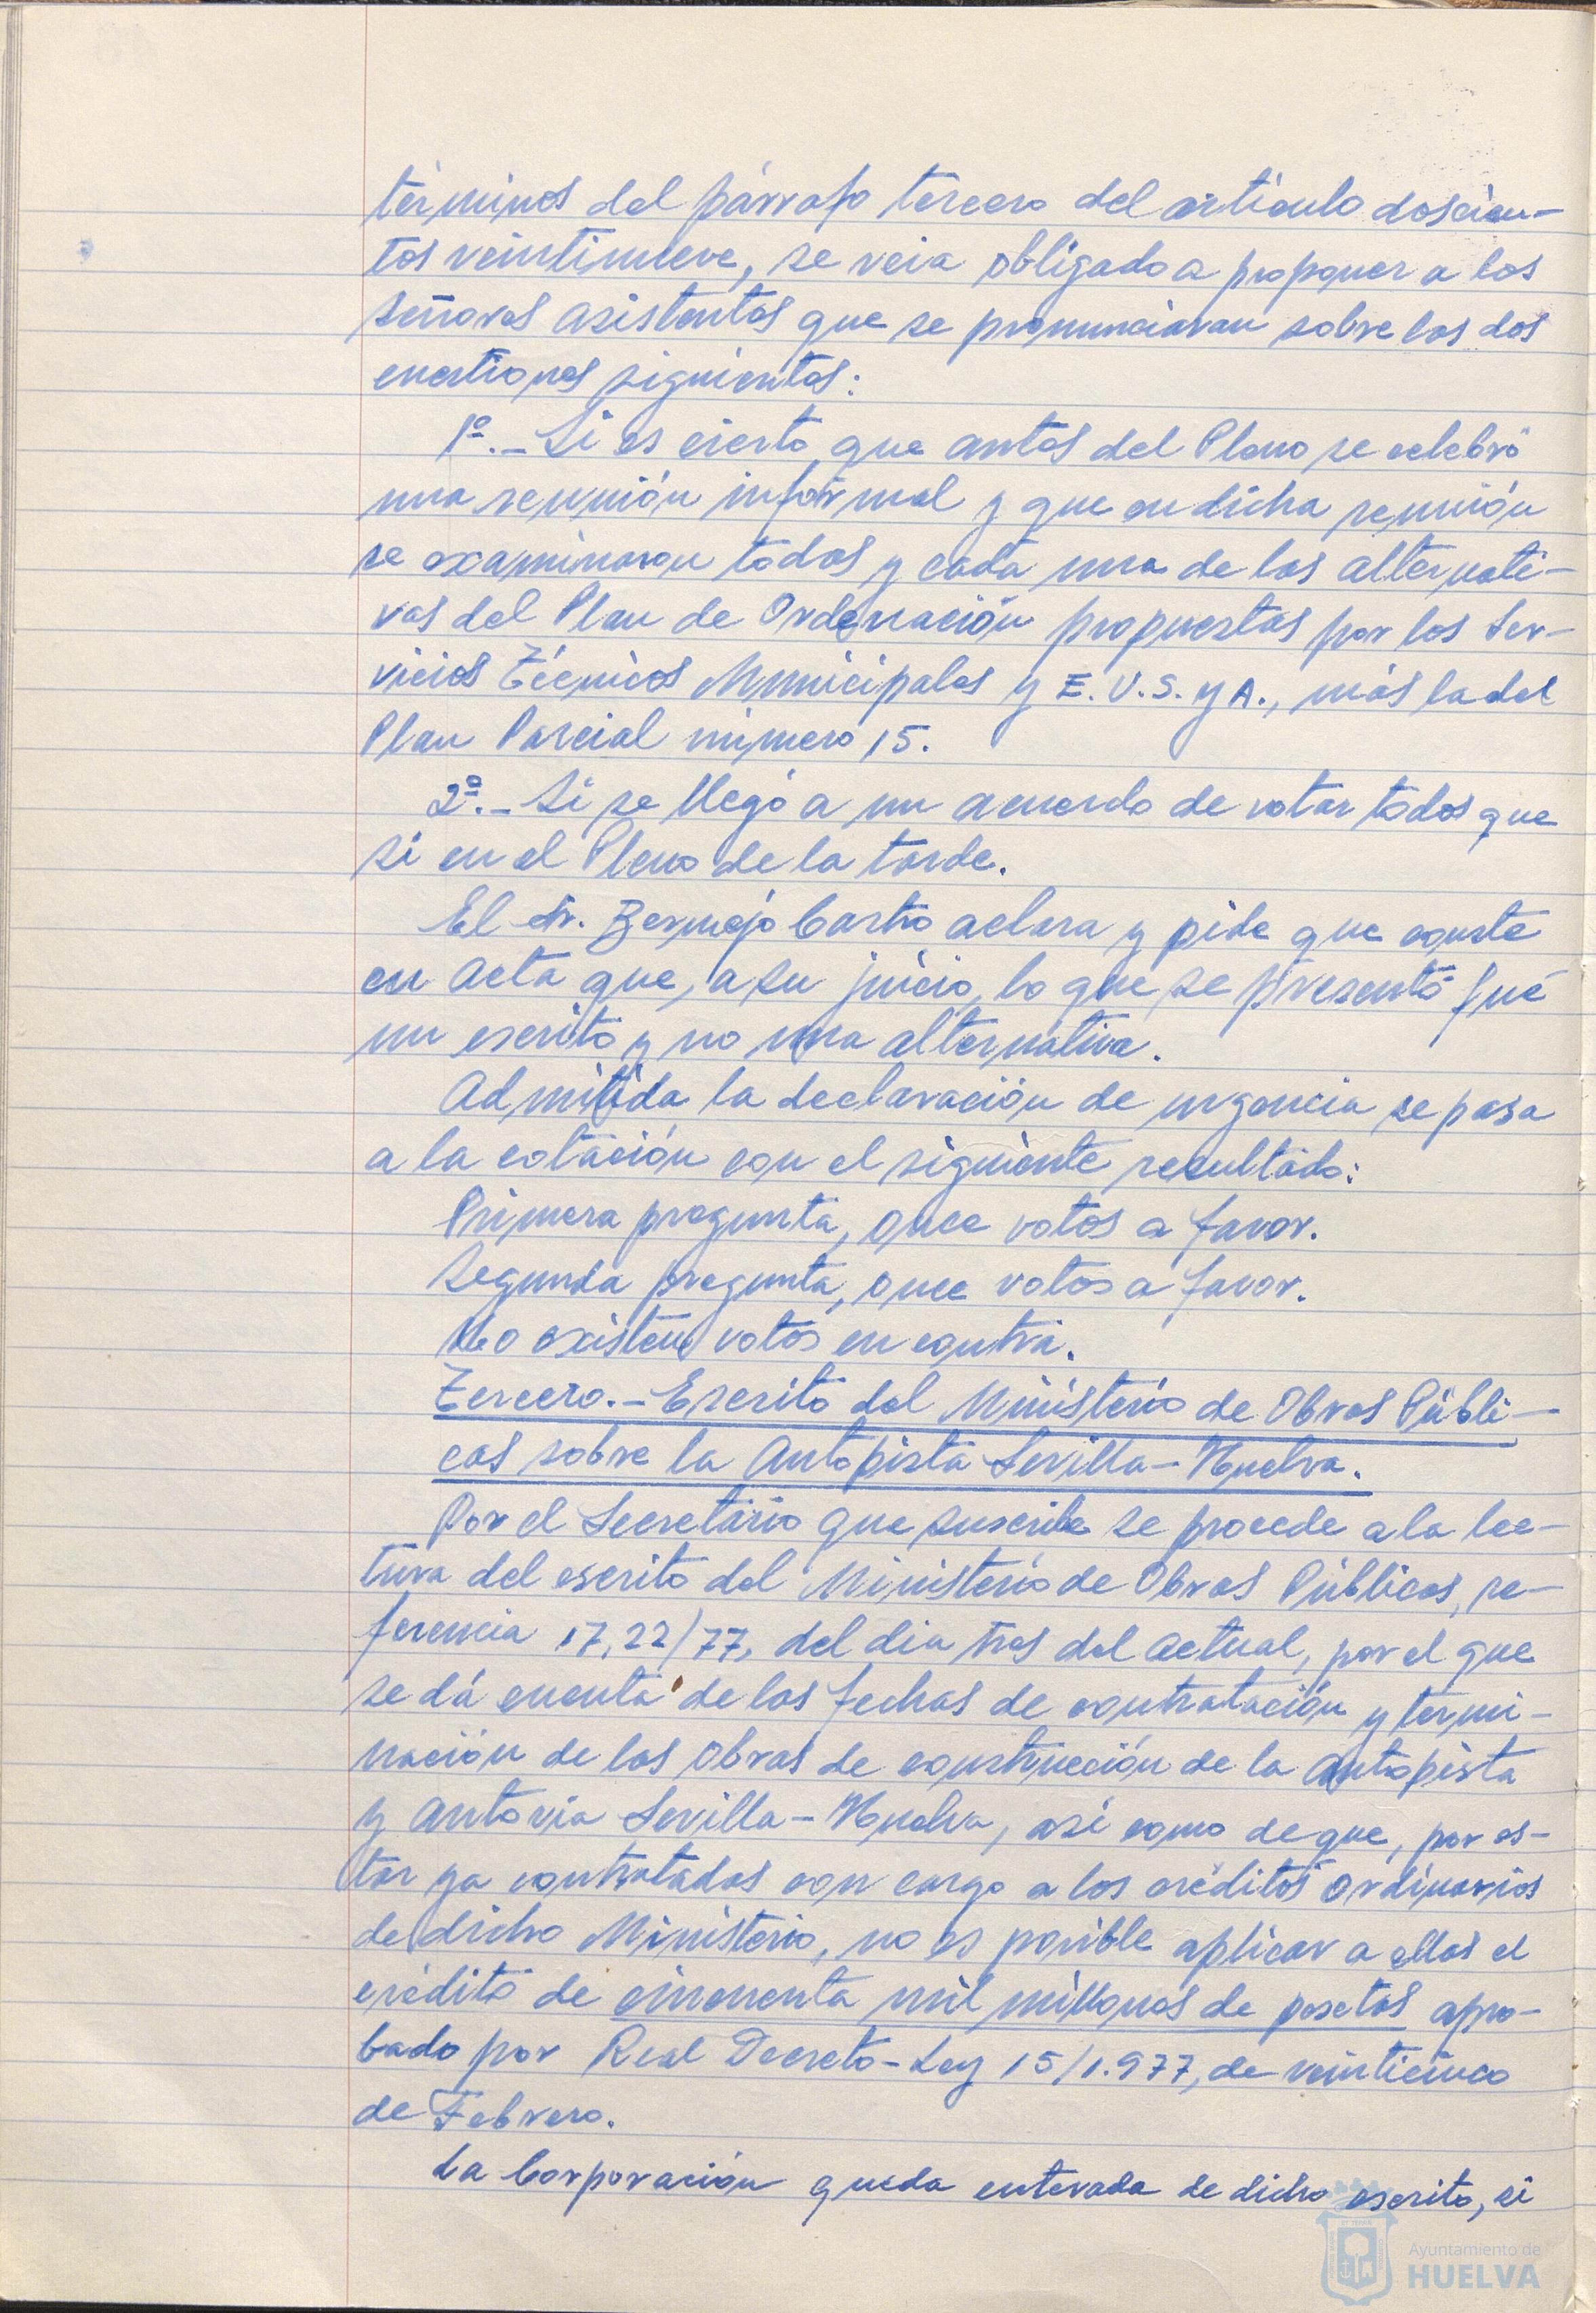 términos del párrafo tercero del artículo doscien-
tos veintinueve, se veia obligado a proponer a los
señores asistentes que se pronunciaran sobre las dos
cuestiones siguientes:
1º.- Si es cierto que antes del Pleno se celebró
una reunión informal y que en dicha reunión
se examinaron todas y cada una de las alternati-
vas del Plan de Ordenación propuestas por los Ser-
vicios Técnicos Municipales y E.U.S. y A., más la del
Plan Parcial número 15.
2º.- Si se llegó a un acuerdo de votar todos que
si en el Pleno de la tarde.
El Sr. Bermejo Castro aclara y pide que conste
en Acta que, a su juicio, lo que se presentó fué
un escrito y no una alternativa.
Admitida la declaración de urgencia se pasa
a la votación con el siguiente resultado:
Primera pregunta, once votos a favor.
Segunda pregunta, once votos a favor.
No existen votos en contra.
Tercero.- Escrito del Ministerio de Obras Públi-
cas sobre la Autopista Sevilla-Huelva.
Por el Secretario que suscribe se procede a la lec-
tura del escrito del Ministerio de Obras Públicas, re-
ferencia 17,22/77, del dia tres del actual, por el que
se dá cuenta de las fechas de contratación y termi-
nación de las Obras de construcción de la Autopista
y Autovía Sevilla-Huelva, asi como de que, por es-
tar ya contratadas con cargo a los créditos ordinarios
de dicho Ministerio, no es posible aplicar a ellas el
crédito de cincuenta mil millones de pesetas apro-
bado por Real Decreto-Ley 15/1.977, de veinticinco
de Febrero.
La Corporación queda enterada de dicho escrito, si
Ayuntamiento de
HUELVA